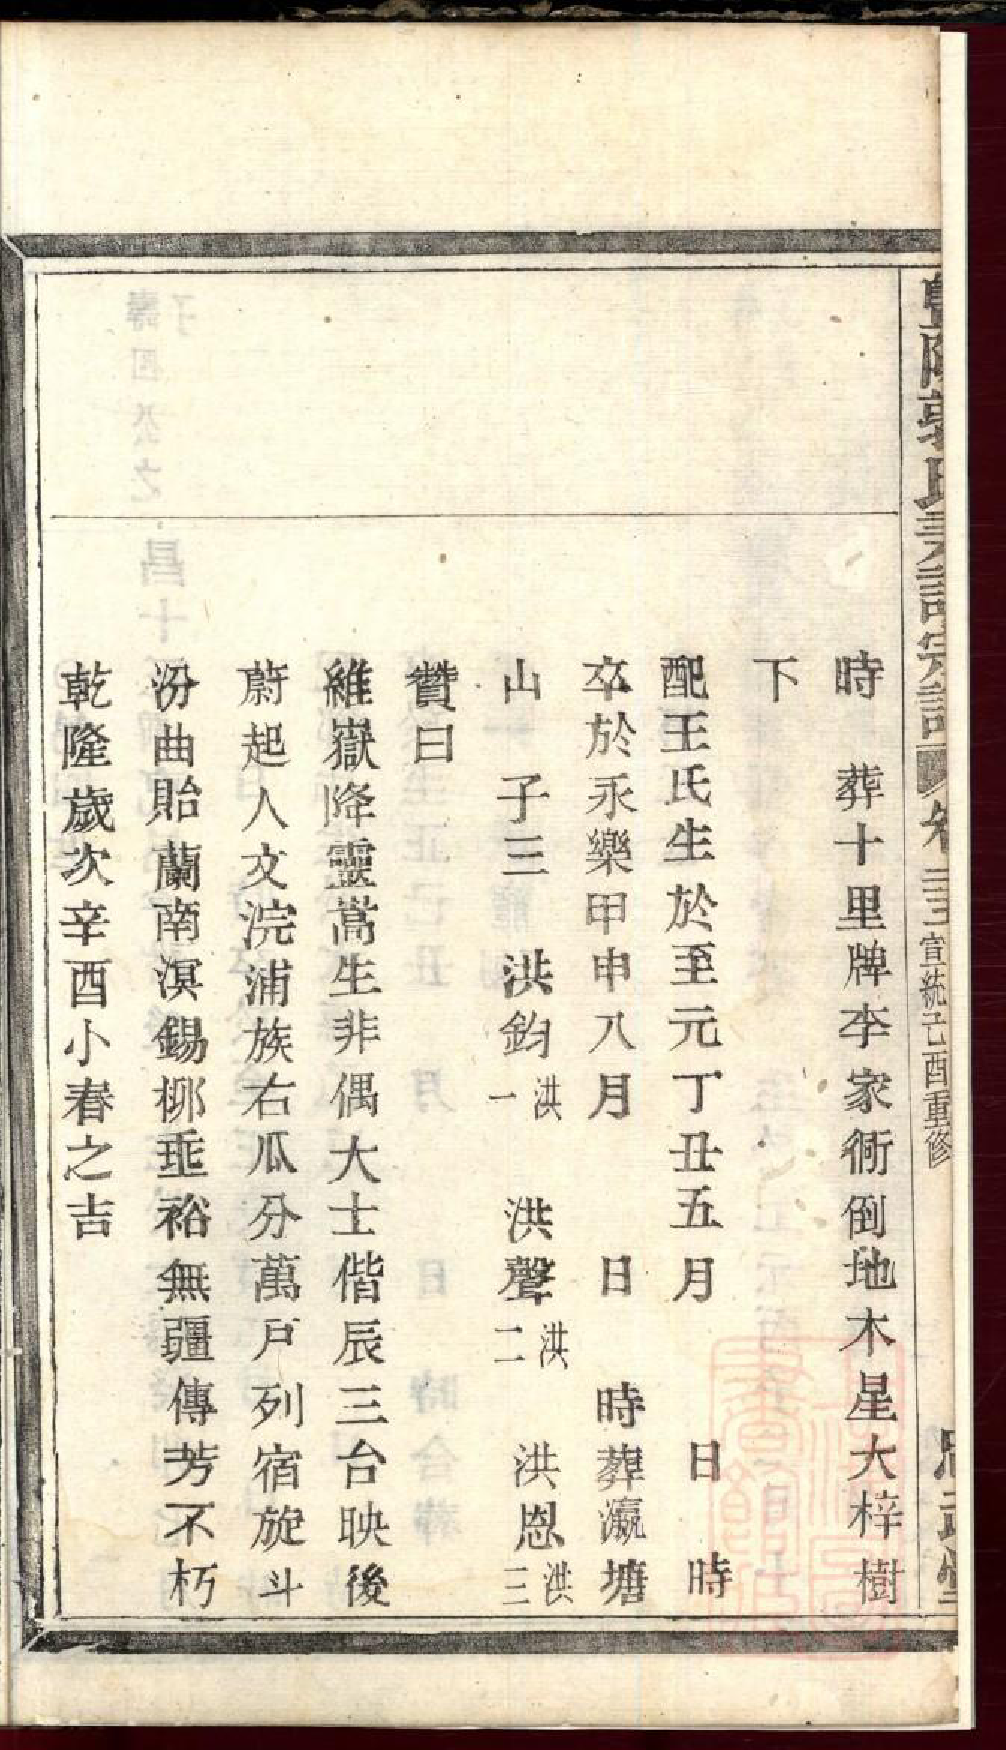 時　葬十里牌李家衕倒地木星大梓樹
下
配王氏生於至元丁丑五月　日　時
卒於永樂甲申八月　日　時葬瀛塘
山　子三　洪鈞洪一　洪聲洪二　洪恩洪三
贊曰
維嶽降靈嵩生非偶大士偕辰三台映後
蔚起人文浣浦族右瓜分萬戶列宿旋斗
汾曲貽蘭南溟錫栁埀裕無疆傳芳不朽
乾隆歲次辛酉小春之吉
宣統己酉重修